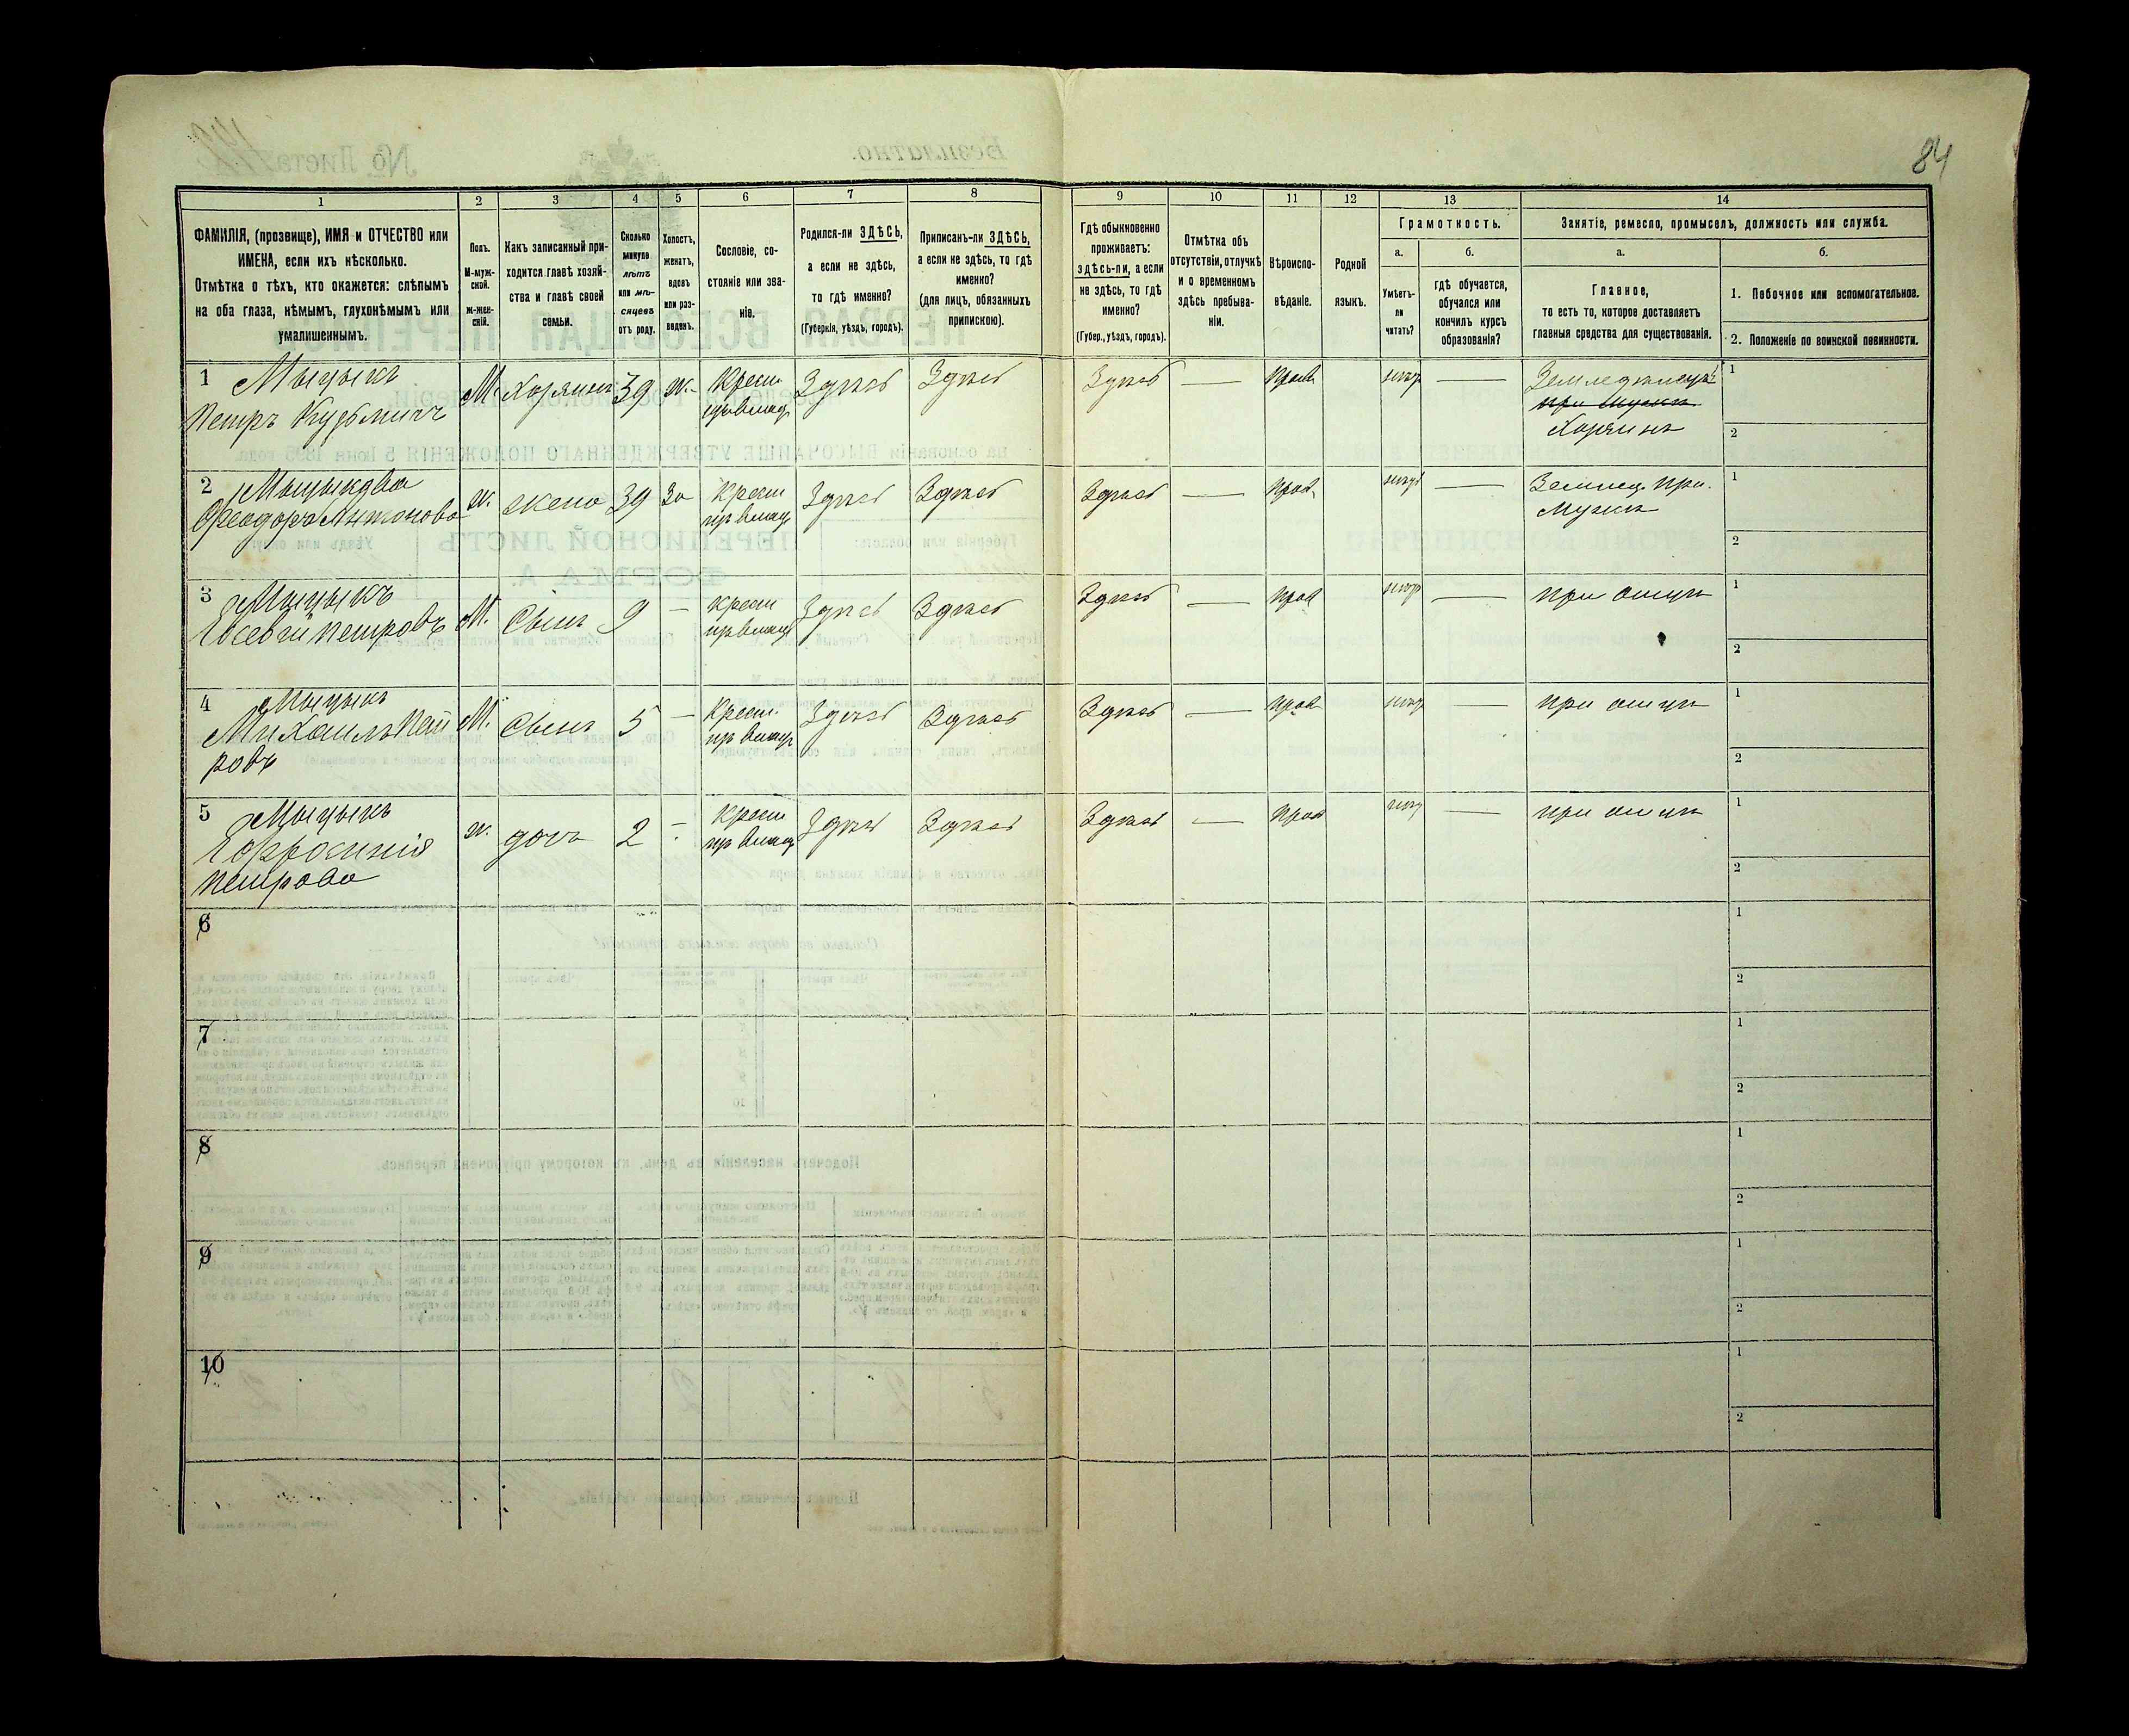 84
1
2
3
4
5
6
7
8
9
10
11
12
13
14
ФАМИЛІЯ, (прозвище), ИМЯ и ОТЧЕСТВО или
ИМЕНА, если ихъ нѣсколько.
Отмѣтка о тѣхъ, кто окажется: слѣпымъ
на оба глаза, нѣмымъ, глухонѣмымъ или
умалишеннымъ.
Полъ.
М-муж-
ской.
ж-жен-
скій.
Какъ записанный при-
ходится главѣ хозяй-
ства и главѣ своей
семьи.
Сколько
минуло
лѣтъ
или мѣ-
сяцевъ
отъ роду.
Холостъ,
женатъ,
вдовъ
или раз-
веденъ.
Сословіе, со-
стояніе или зва-
ніе.
Родился-ли ЗДѢСЬ,
а если не здѣсь,
то гдѣ именно?
(Губернія, уѣздъ, городъ).
Приписанъ-ли ЗДѢСЬ,
а если не здѣсь, то гдѣ
именно?
(для лицъ, обязанныхъ
припискою).
Гдѣ обыкновенно
проживаетъ:
здѣсь-ли, а если
не здѣсь, то гдѣ
именно?
(Губер., уѣздъ, городъ).
Отмѣтка объ
отсутствіи, отлучкѣ
и о временномъ
здѣсь пребыва-
ніи.
Вѣроиспо-
вѣданіе.
Родной
языкъ.
Грамотность.
а.
Умѣетъ-
ли
читать?
б.
гдѣ обучается,
обучался или
кончилъ курсъ
образованія?
Занятіе, ремесло, промыселъ, должность или служба.
а.
Главное,
то есть то, которое доставляетъ
главныя средства для существованія.
б.
1. Побочное или вспомогательное.
2. Положеніе по воинской повинности.
1 Мыцыкъ
Петръ Кузьмичъ
М. Хозяинъ 39 ж. Крест. Здѣсь Здѣсь Здѣсь — Прав. —
Хозяинъ
1
2
2 Мыцыкова
Феодора Антонова
ж. жена 39 За Крест Здѣсь Здѣсь Здѣсь — Прав. —
1
2
3 Мыцыкъ
Евсевій Петровъ
М. Сынъ 9 — Крест Здѣсь Здѣсь Здѣсь — Прав — при отцѣ
1
2
4 Мыцыкъ
Михаилъ Пет
ровъ
М. Сынъ 5 — Крест. Здѣсь Здѣсь Здѣсь — Прав — при отцѣ
1
2
5 Мыцыкъ
Ефросинія
Петрова
ж. дочь 2 — Крест Здѣсь Здѣсь Здѣсь — Прав — при отцѣ
1
2
6
1
2
7
1
2
8
1
2
9
1
2
10
1
2